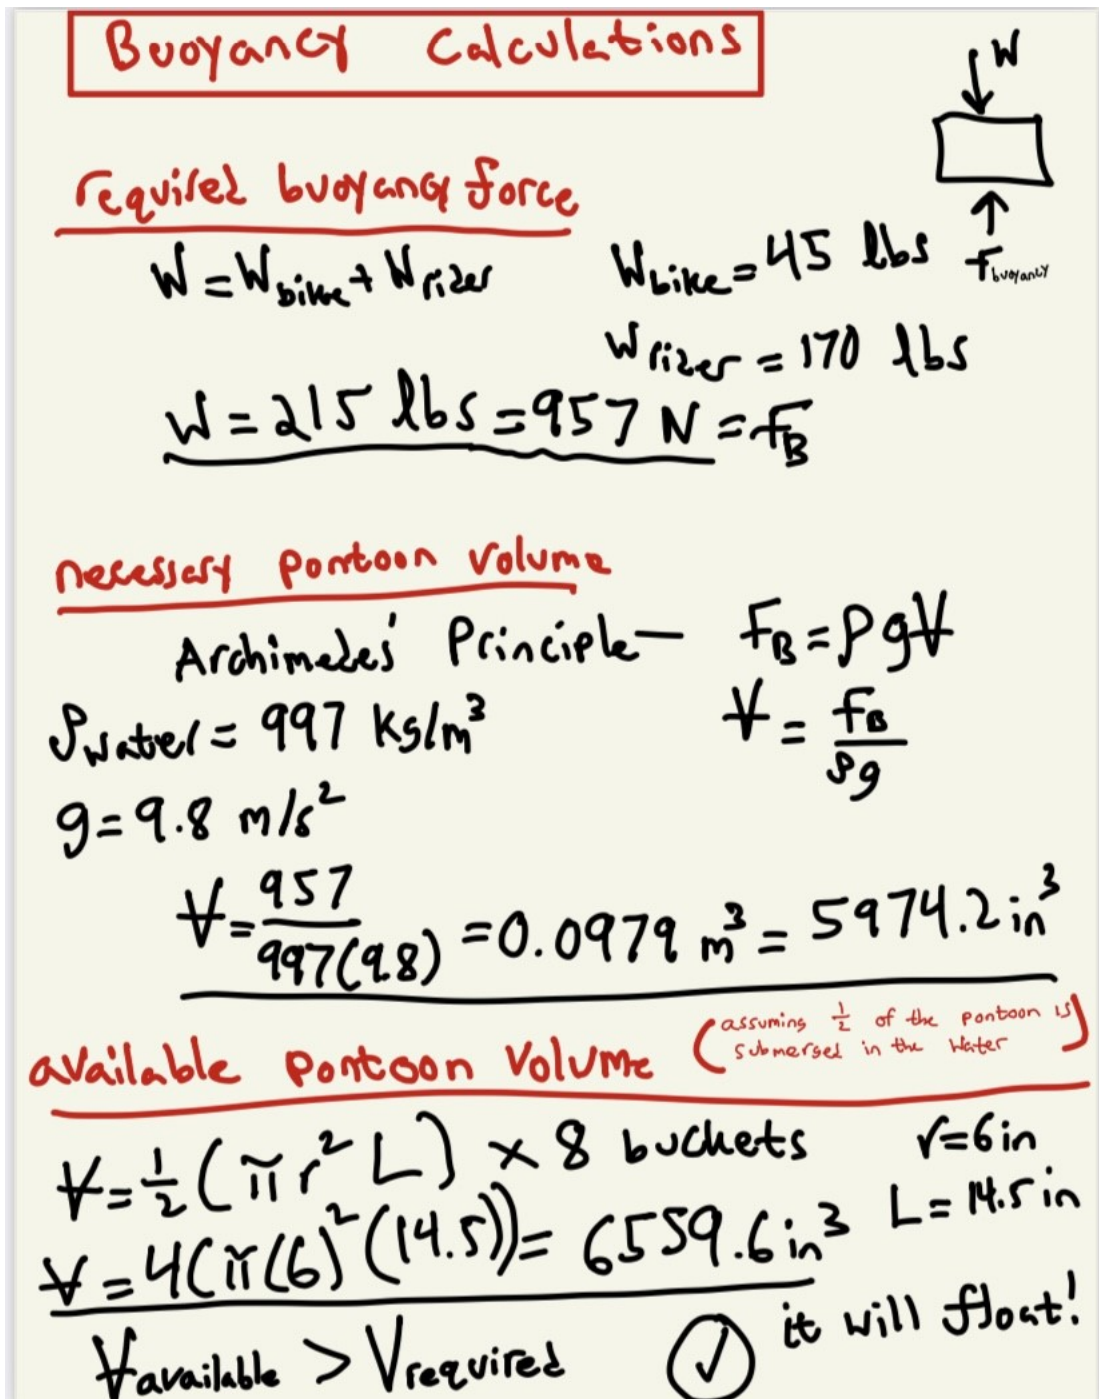 Buoyancy Calculations
W
required buoyancy force
W = W bike + W rider
W bike = 45 lbs
F buoyancy
W rider = 170 lbs
W = 215 lbs = 957 N = F_B
necessary pontoon volume
Archimedes' Principle — F_B = ρgV
ρ water = 997 kg/m³
V = F_B / ρg
g = 9.8 m/s²
V = 957 / 997(9.8) = 0.0979 m³ = 5974.2 in³
available pontoon volume
(assuming 1/2 of the pontoon is
submerged in the water)
V = 1/2 (πr²L) × 8 buckets
r = 6 in
L = 14.5 in
V = 4(π(6)²(14.5)) = 6559.6 in³
V available > V required
✓ it will float!